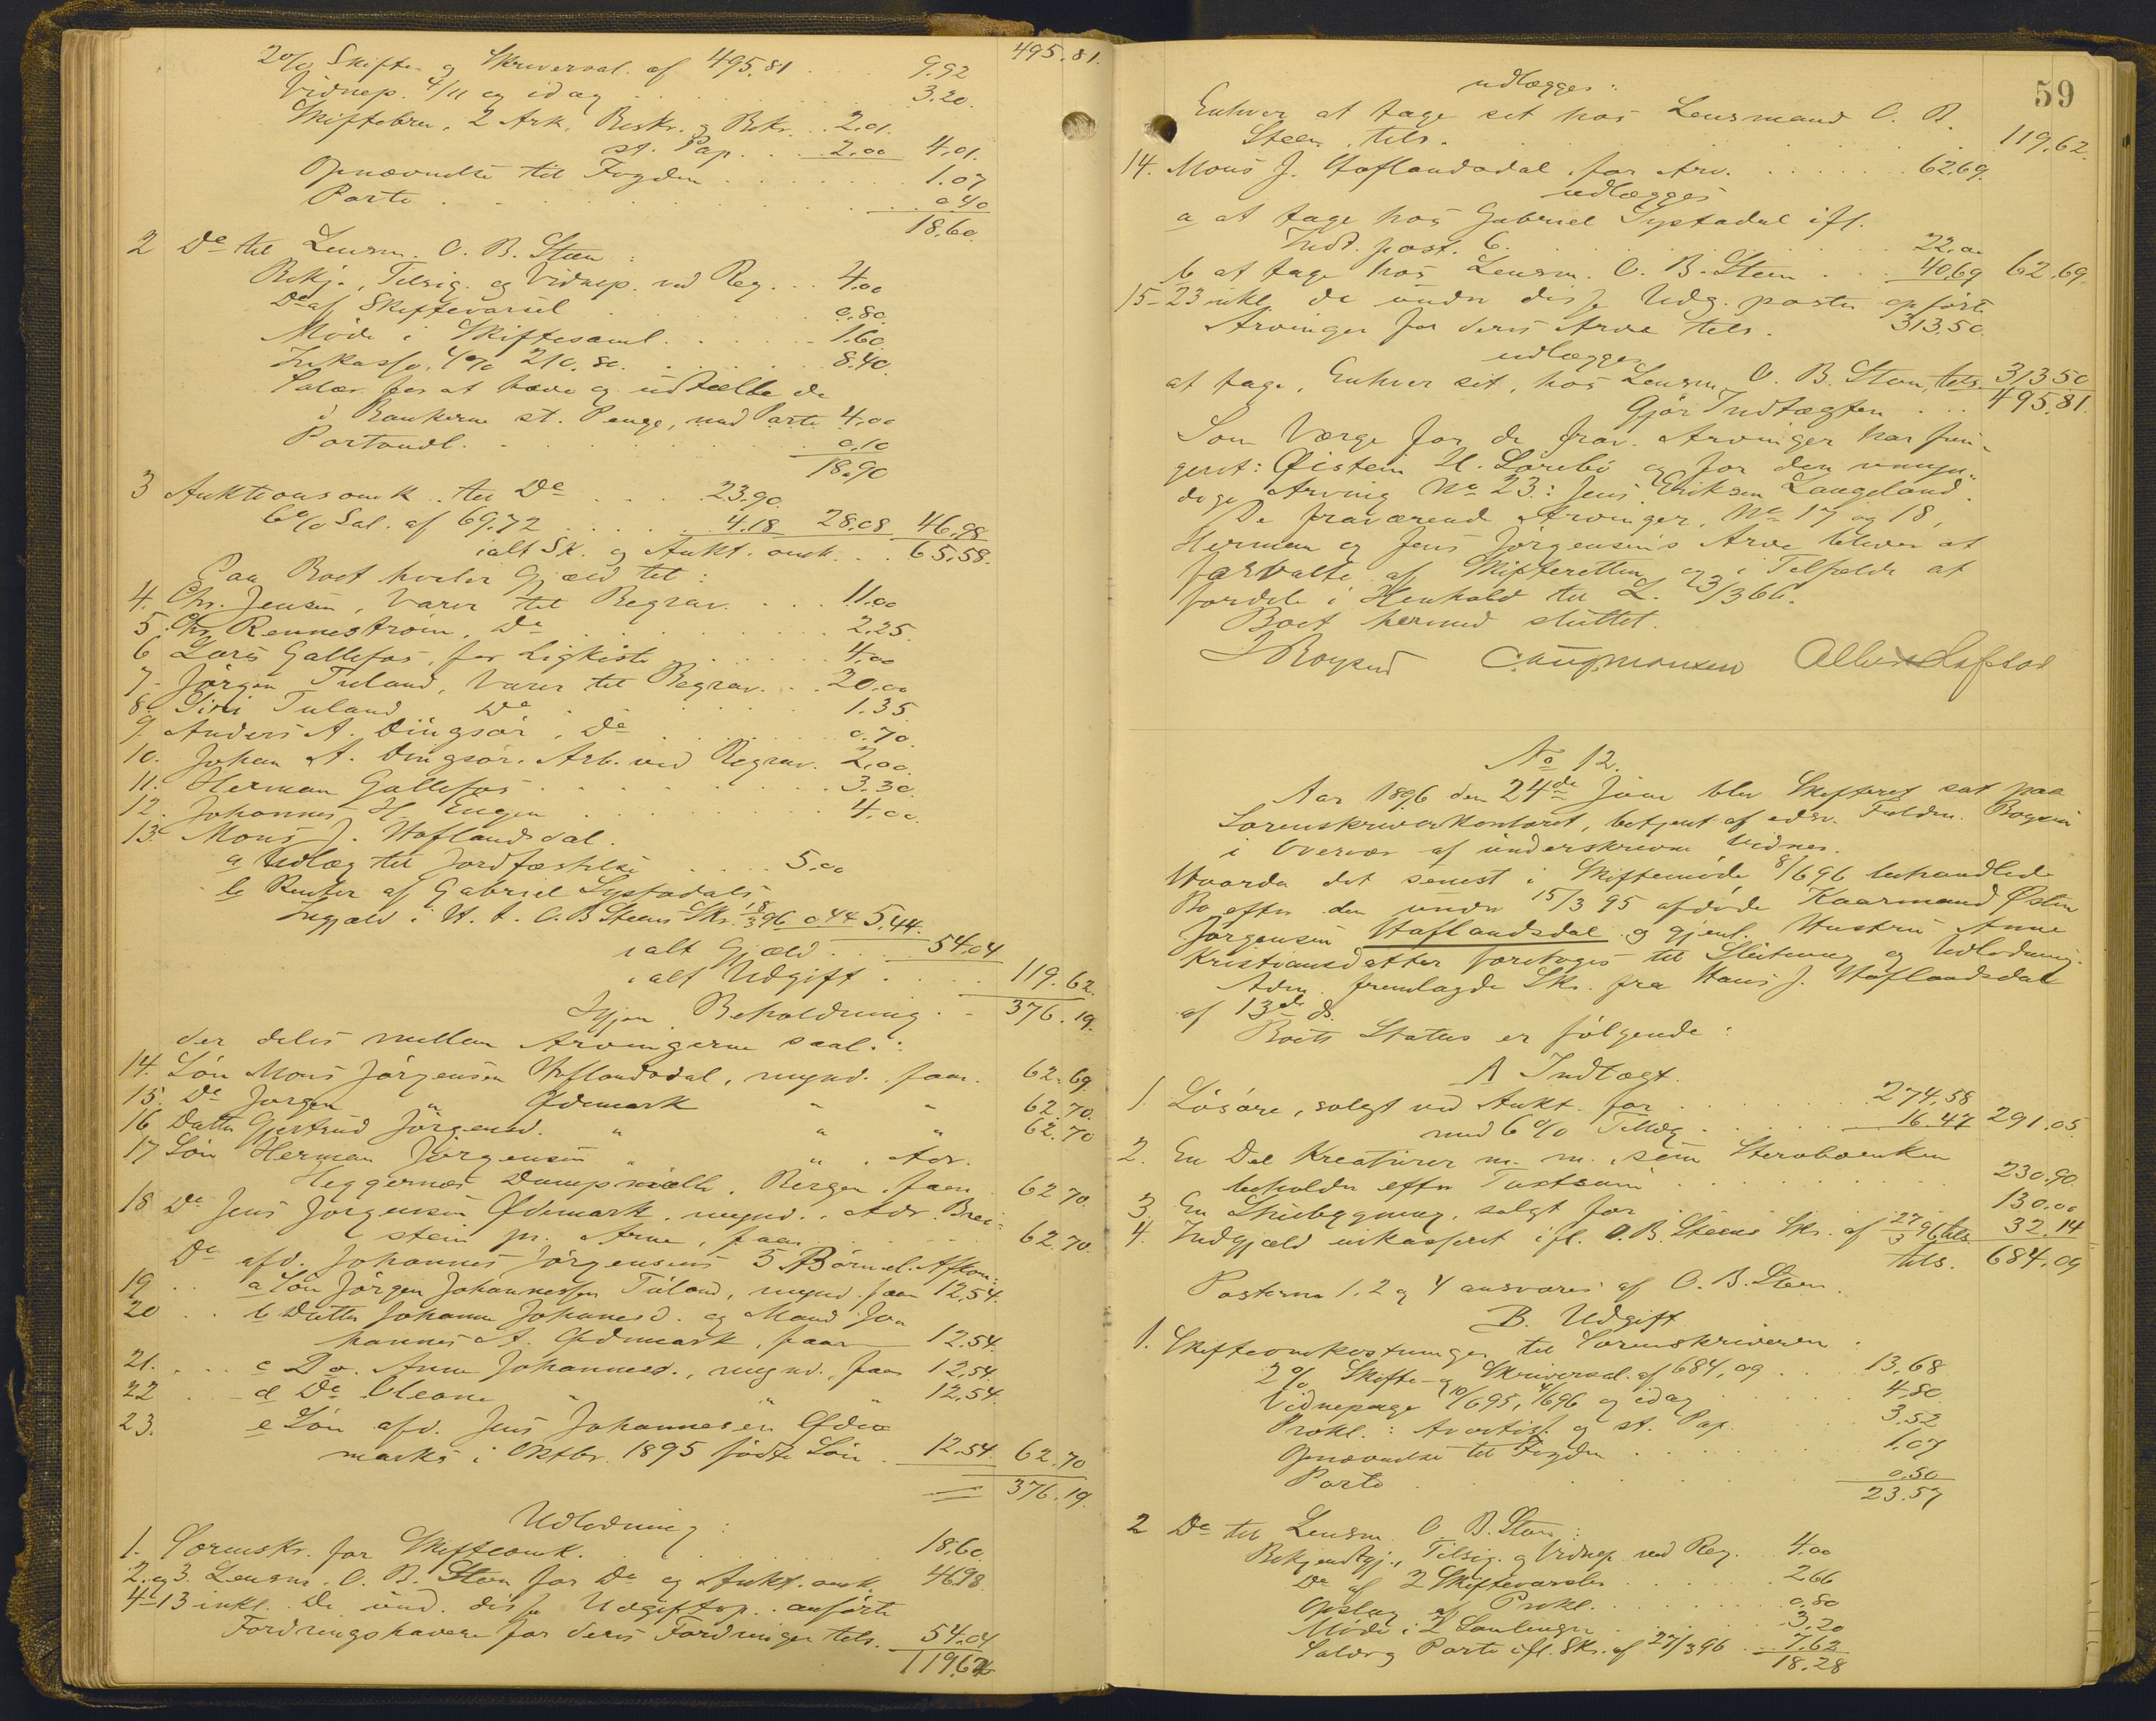 495.81.
2% Skifte- og Skriversal. af 495.81 . . 9.92
Vidnep. 4/11 og idag . . . 3.20.
Skiftebrev, 2 Ark, Beskr. og Bekr. . . 2.01.
st. Pap. . . . 2.00 4.01.
Opnævnelse til Fogden . . . 1.07
Porto . . . 0.40
18.60.
2 Do til Lensm. O. B. Steen :
Bekj., Tilsig. og Vidnep. ved Reg. . . 4.00
Do af Skiftevarsel . . . 0.80.
Møde i Skiftesaml. . . . 1.60.
Inkasso, 4% 210.80. . . . 8.40.
Salær for at hæve og udstælle de
i Bankerne st. Penge, med Porto 4.00
Portoudl. . . . 0.10
18.90
3 Auktionsomk. til Do . . . 23.90.
6% Sal. af 69.72 . . . 4.18 28.08 46.98
ialt Sk. og Aukt. omk. . . 65.58.
Paa Boet hviler Gjæld til :
4. Chr. Jensen, Varer til Begrav. . . 11.00
5. Chr. Rennestrøm, Do . . . 2.25.
6 Lars Gallefos, for Ligkiste . . . 4.00
7. Jørgen Tuland, Varer til Begrav. . . 20.00
8. Siri Tuland Do . . . 1.35.
9. Anders A. Dingsør, Do . . . 0.70.
10. Johan A. Dingsør. Arb. ved Begrav. 2.00.
11. Herman Gallefos . . . 3.30.
12. Johannes H. Engen . . . 4.00.
13. Mons J. Høflandsdal.
a Udlæg til Jordfæstelse . . . 5.00
b Renter af Gabriel Systadals
Indgjæld i H. t. O. B Steens Skr. 18/3 96 0.44 5.44.
ialt Gjæld . . . 54.04
ialt Udgift . . . 119.62.
Igjen Beholdning . . 376.19.
der deles mellem Arvingerne saal. :
14. Søn Mons Jørgensen Høflandsdal, mynd. faar. 62.69.
15. Do Jørgen " Ødemark " " 62.70.
16 Datter Gjertrud Jørgensd. " " " 62.70
17 Søn Herman Jørgensen " " , Adr.
Heggernes Dampmølle, Bergen, faar 62.70.
18 Do Jens Jørgensen Ødemark, mynd., Adr. Brei-
stein pr. Arne, faar . . . 62.70.
Do afd. Johannes Jørgensens 5 Børn el. Afkom:
19 . . a Søn Jørgen Johannesen Tuland, mynd. faar 12.54.
20 . . b Datter Johanne Johannesd. og Mand Jo-
hannes A. Ødemark, faar 12.54.
21. . . c Do. Anne Johannesd., mynd., faar 12.54.
22 . . d Do Oleane " " " 12.54.
23. e Søn afd. Jens Johannesen Øde-
marks i Oktbr. 1895 fødte Søn . 12.54. 62.70
376.19.
Udlodning :
1. Sorenskr. for Skifteomk. . . . 18.60.
2. og 3. Lensm. O. B. Steen for Do og Aukt. omk. 46.98.
4-13 inkl. De und. disse Udgiftsp. anførte
Fordringshavere for deres Fordringer tils. 54.04
119.62
59
udlægges :
Enhver at tage sit hos Lensmand O. B.
Steen, tils. . . . 119.62.
14. Mons J. Høflandsdal, for Arv. . . . 62.69.
udlægges
a at tage hos Gabriel Systadal ifl.
Indt. post. 6. . . . 22.00
b at tage hos Lensm. O. B. Steen . . . 40.69 62.69.
15-23 inkl. de under disse Udg. poster opførte
Arvinger for deres Arve tils. 313.50.
udlægges
at tage, Enhver sit, hos Lensm. O. B. Steen, tils. 313.50
Gjør Indtægten . . . 495.81.
Som Værge for de frav. Arvinger har fun-
geret: Øistein H. Sørebø og for den umyn-
dige Arving No 23 : Jens Eriksen Langeland.
De fraværende Arvinger, No 17 og 18,
Herman og Jens Jørgensens Arve bliver at
forvalte af Skifteretten og i Tilfælde at
fordele i Henhold til L. 23/3 66.
Boet hermed sluttet.
No 12.
Aar 1896 den 24de Juni blev Skifteret sat paa
Sorenskriverkontoret, betjent af edsv. Fuldm. Boysen
i Overvær af underskrevne Vidner.
Hvorda det senest i Skiftemøde 8/6 96 behandlede
Bo efter den under 15/3 95 afdøde Kaarmand Østen
Jørgensen Høflandsdal og gjenl. Hustru Anne
Kristiansdatter foretoges til Slutning og Udlodning.
Adm. fremlagde Skr. fra Hans J. Høflandsdal
af 13de ds.
Boets Status er følgende :
A Indtægt.
1. Løsøre, solgt ved Aukt. for . . . 274.58
med 6% Tillæg . . . 16.47 291.05.
2. En Del Kreaturer m. m., som Stervboenken
beholder efter Taxtsum . . . 230.90.
3. En Skiebygning, solgt for . . . 130.00
4. Indgjæld inkasseret ifl. O. B. Steens Skr. af 27/3 96 tils. 32.14
tils. 684.09
Posterne 1, 2 og 4 ansvares af O. B. Steen.
B. Udgift
1. Skifteomkostninger til Sorenskriveren :
2% Skifte- og Skriversal. af 684.09 . . . 13.68
Vidnepenge 10/6 95, 4/6 96 og idag . . . 4.80
Prokl. : Avertiss. og st. Pap. . . . 3.52
Opnævnelse til Fogden . . . 1.07
Porto . . . 0.50
23.57
2 Do til Lensm. O. B. Steen :
Bekjendtgj., Tilsig. og Vidnep. ved Reg. . 4.00
Do af 2 Skiftevarsler . . . 2.66
Opslag af Prokl. . . . 0.80
Møde i 2 Samlinger . . . 3.20
Salær og Porto ifl. Skr. af 27/3 96 . . 7.62
18.28